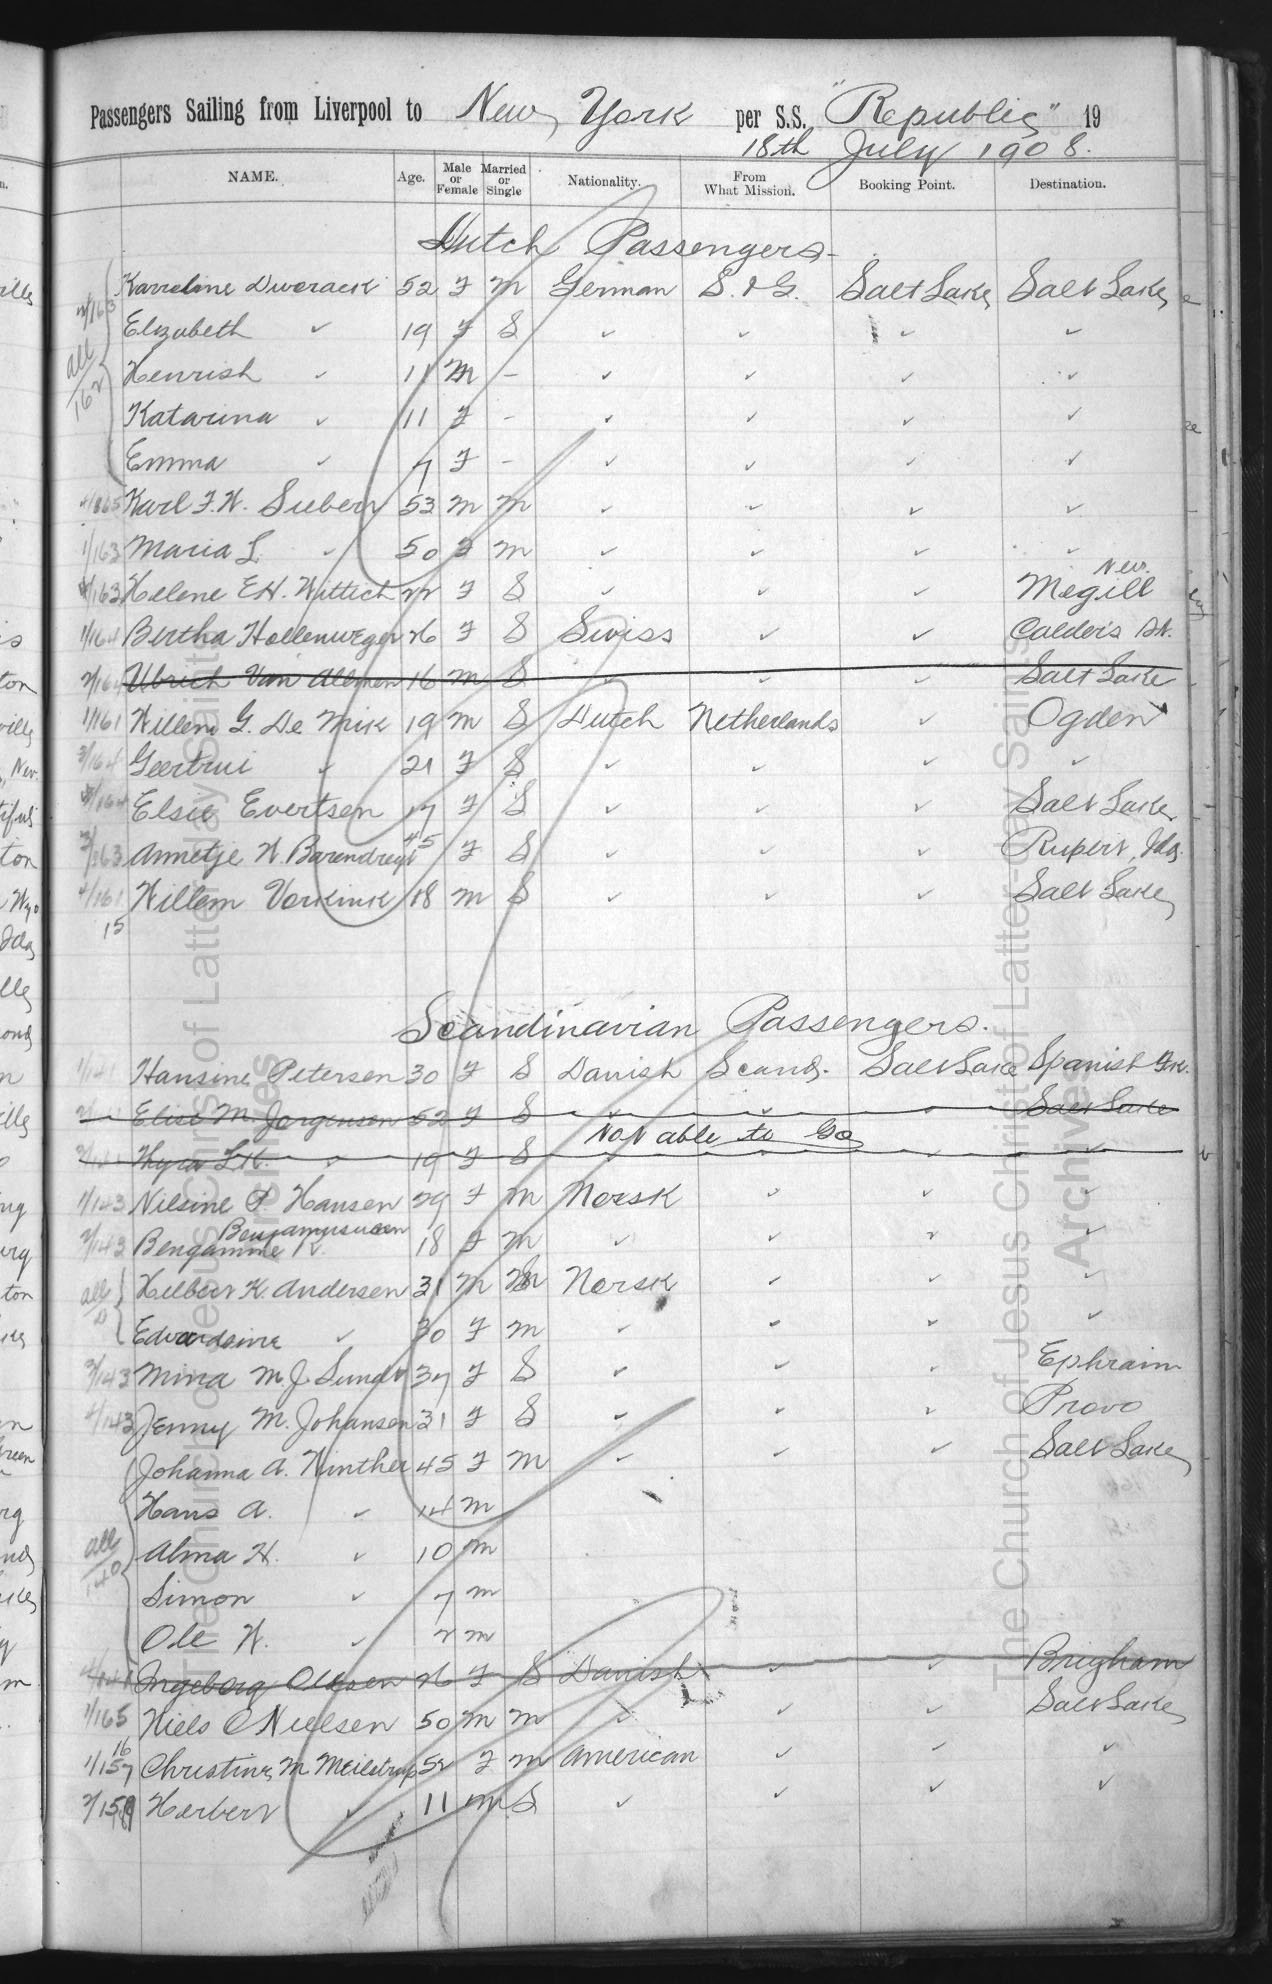 Passengers Sailing from Liverpool to New York per S.S. "Republic" 19
18th July 1908.
NAME. Age. Male or Female Married or Single Nationality. From What Mission. Booking Point. Destination.
Dutch Passengers.
Karreline Dworack 52 F M German S. & G. Salt Lake Salt Lake
Elizabeth ✓ 19 F S ✓ ✓ ✓ ✓
Henrish ✓ 11 M - ✓ ✓ ✓ ✓
Katarina ✓ 11 F - ✓ ✓ ✓ ✓
Emma ✓ 7 F - ✓ ✓ ✓ ✓
all 162
Karl F. W. Siebert 53 M M ✓ ✓ ✓ ✓
1/163 Maria L. ✓ 50 F M ✓ ✓ ✓ ✓
Helene E.H. Wittich 22 F S ✓ ✓ ✓ Megill Nev.
1/164 Bertha Hollenweger 26 F S Swiss ✓ ✓ Calder's St.
2/164 Ulrich Van Allmen 16 M S ✓ ✓ ✓ Salt Lake
1/161 Willem G. De Mik 19 M S Dutch Netherlands ✓ Ogden
3/164 Geertrui ✓ 21 F S ✓ ✓ ✓ ✓
Elsie Evertsen 17 F S ✓ ✓ ✓ Salt Lake
3/163 Annetje W. Barendregt 45 F S ✓ ✓ ✓ Rupert, Ida.
4/161 Willem Vorkink 18 M S ✓ ✓ ✓ Salt Lake
15
Scandinavian Passengers.
1/141 Hansine Petersen 30 F S Danish Scand. Salt Lake Spanish Fk.
Elise M. Jorgensen 52 F S ✓ ✓ ✓ Salt Lake
Not able to Go
Thyra L.K. ✓ 19 F S ✓ ✓
1/143 Nilsine P. Hansen 29 F M Norsk ✓ ✓ ✓
2/143 Bengamine K. 18 F M ✓ ✓ ✓ ✓
Hilbert H. Andersen 31 M M Norsk ✓ ✓ ✓
Edvardsine ✓ 30 F M ✓ ✓ ✓ ✓
3/143 Mina M. J. Sundt 37 F S ✓ ✓ ✓ Ephraim
4/143 Jenny M. Johansen 31 F S ✓ ✓ ✓ Provo
Johanna A. Winther 45 F M ✓ ✓ ✓ Salt Lake
Hans A. ✓ 14 M
all 140
Alma H. ✓ 10 M
Simon ✓ 7 M
Ole W. ✓ 2 M
Ingeborg Olesen 26 F S Danish ✓ ✓ Brigham
2/165 Niels C Nielsen 50 M M ✓ ✓ ✓ Salt Lake
16
1/157 Christine M Meilstrup 52 F M American ✓ ✓ ✓
Herbert ✓ 11 M S ✓ ✓ ✓ ✓
The Church of Jesus Christ of Latter-day Saints
Archives
The Church of Jesus Christ of Latter-day Saints
Archives